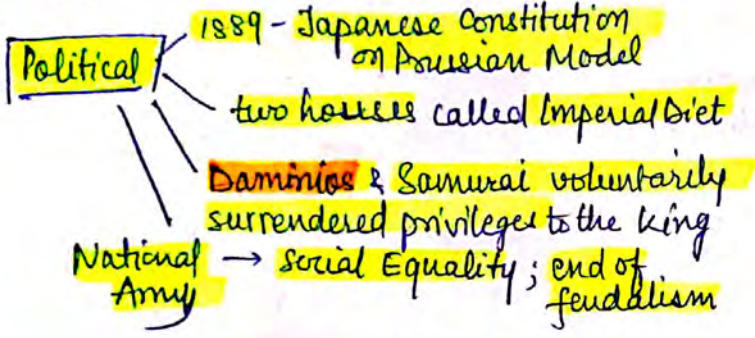 1889 - Japanese Constitution
on Prussian Model
Political
two houses called Imperial Diet
Daminios & Samurai voluntarily
surrendered privileges to the king
National → social Equality; end of
Army feudalism